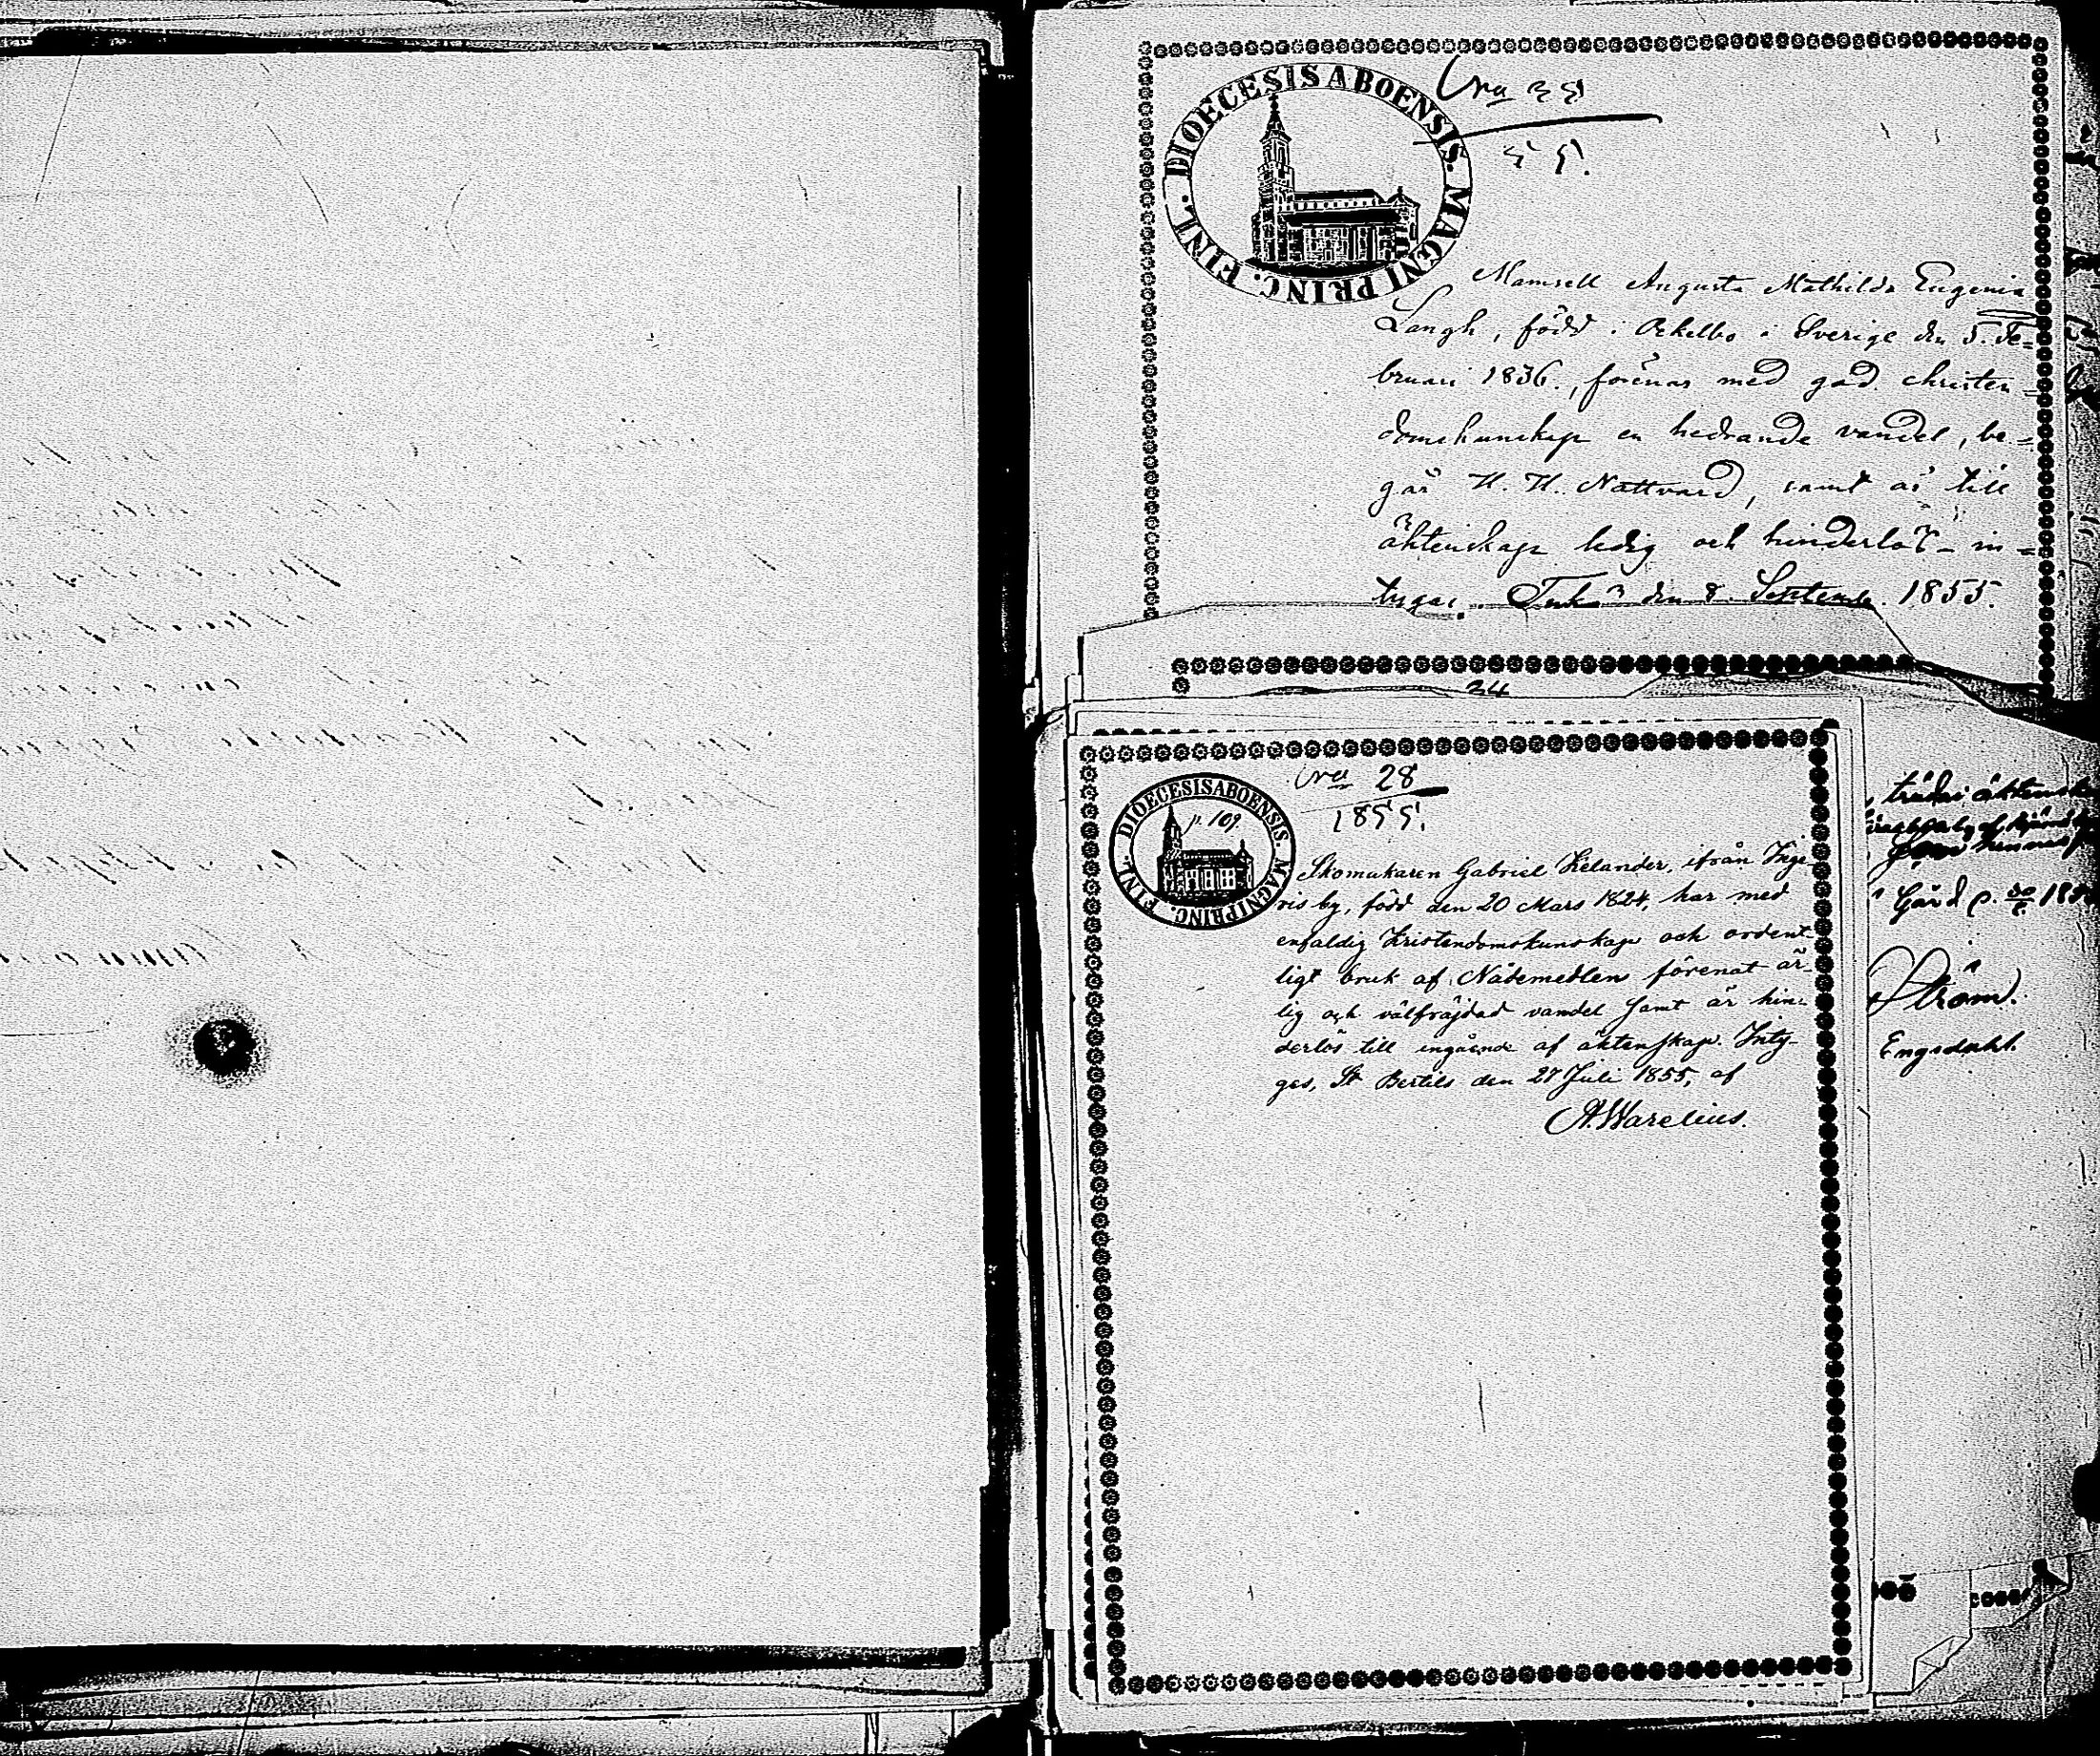 DIOECESIS ABOENSIS. MAGNI PRINC. FINL.
55.
Mamsell Augusta Mathilda Eugenia
Langh, född i Ockelbo i Sverige den 5. Fe=
bruari 1836., förenar med god christen=
domskunskap en hedrande vandel, be=
går H. H. Nattvard, samt är till
äktenskap ledig och hinderlös – in=
tygar. den 8. Septemb. 1855.
24
DIOECESIS ABOENSIS. MAGNI PRINC. FINL.
p. 109.
28
1855.
Skomakaren Gabriel Kelander, ifrån Inge-
ris by, född den 20 Mars 1824, har med
enfaldig Kristendomskunskap och ordent-
ligt bruk af Nådemedlen förenat är-
lig och välfräjdad vandel samt är hin-
derlös till ingående af äktenskap. Inty-
gas, St Bertils den 27 Juli 1855, af
A. Warelius.
träda i äktensk
Gård p.
Ström.
Engsdahl.